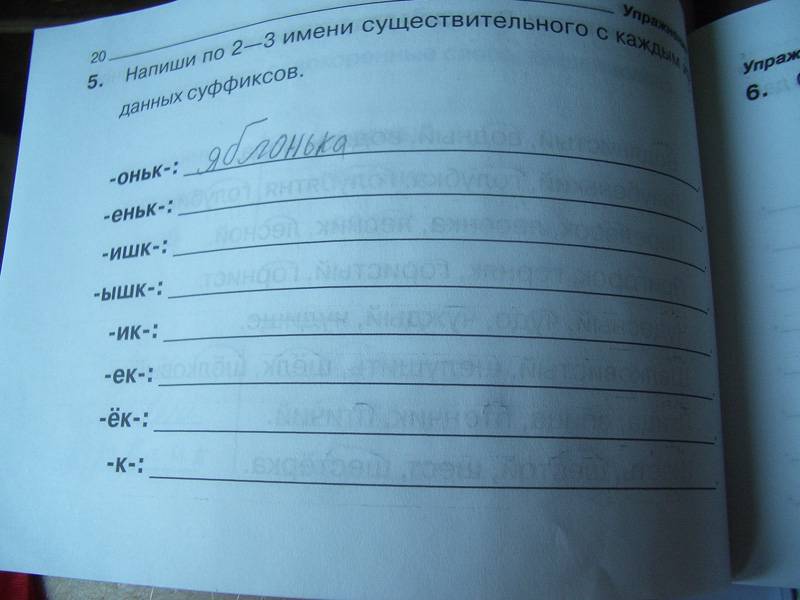 20
Упражнен
5. Напиши по 2—3 имени существительного с каждым из
данных суффиксов.
-оньк-: яблонька
-еньк-:
-ишк-:
-ышк-:
-ик-:
-ек-:
-ёк-:
-к-:
Упраж
6.